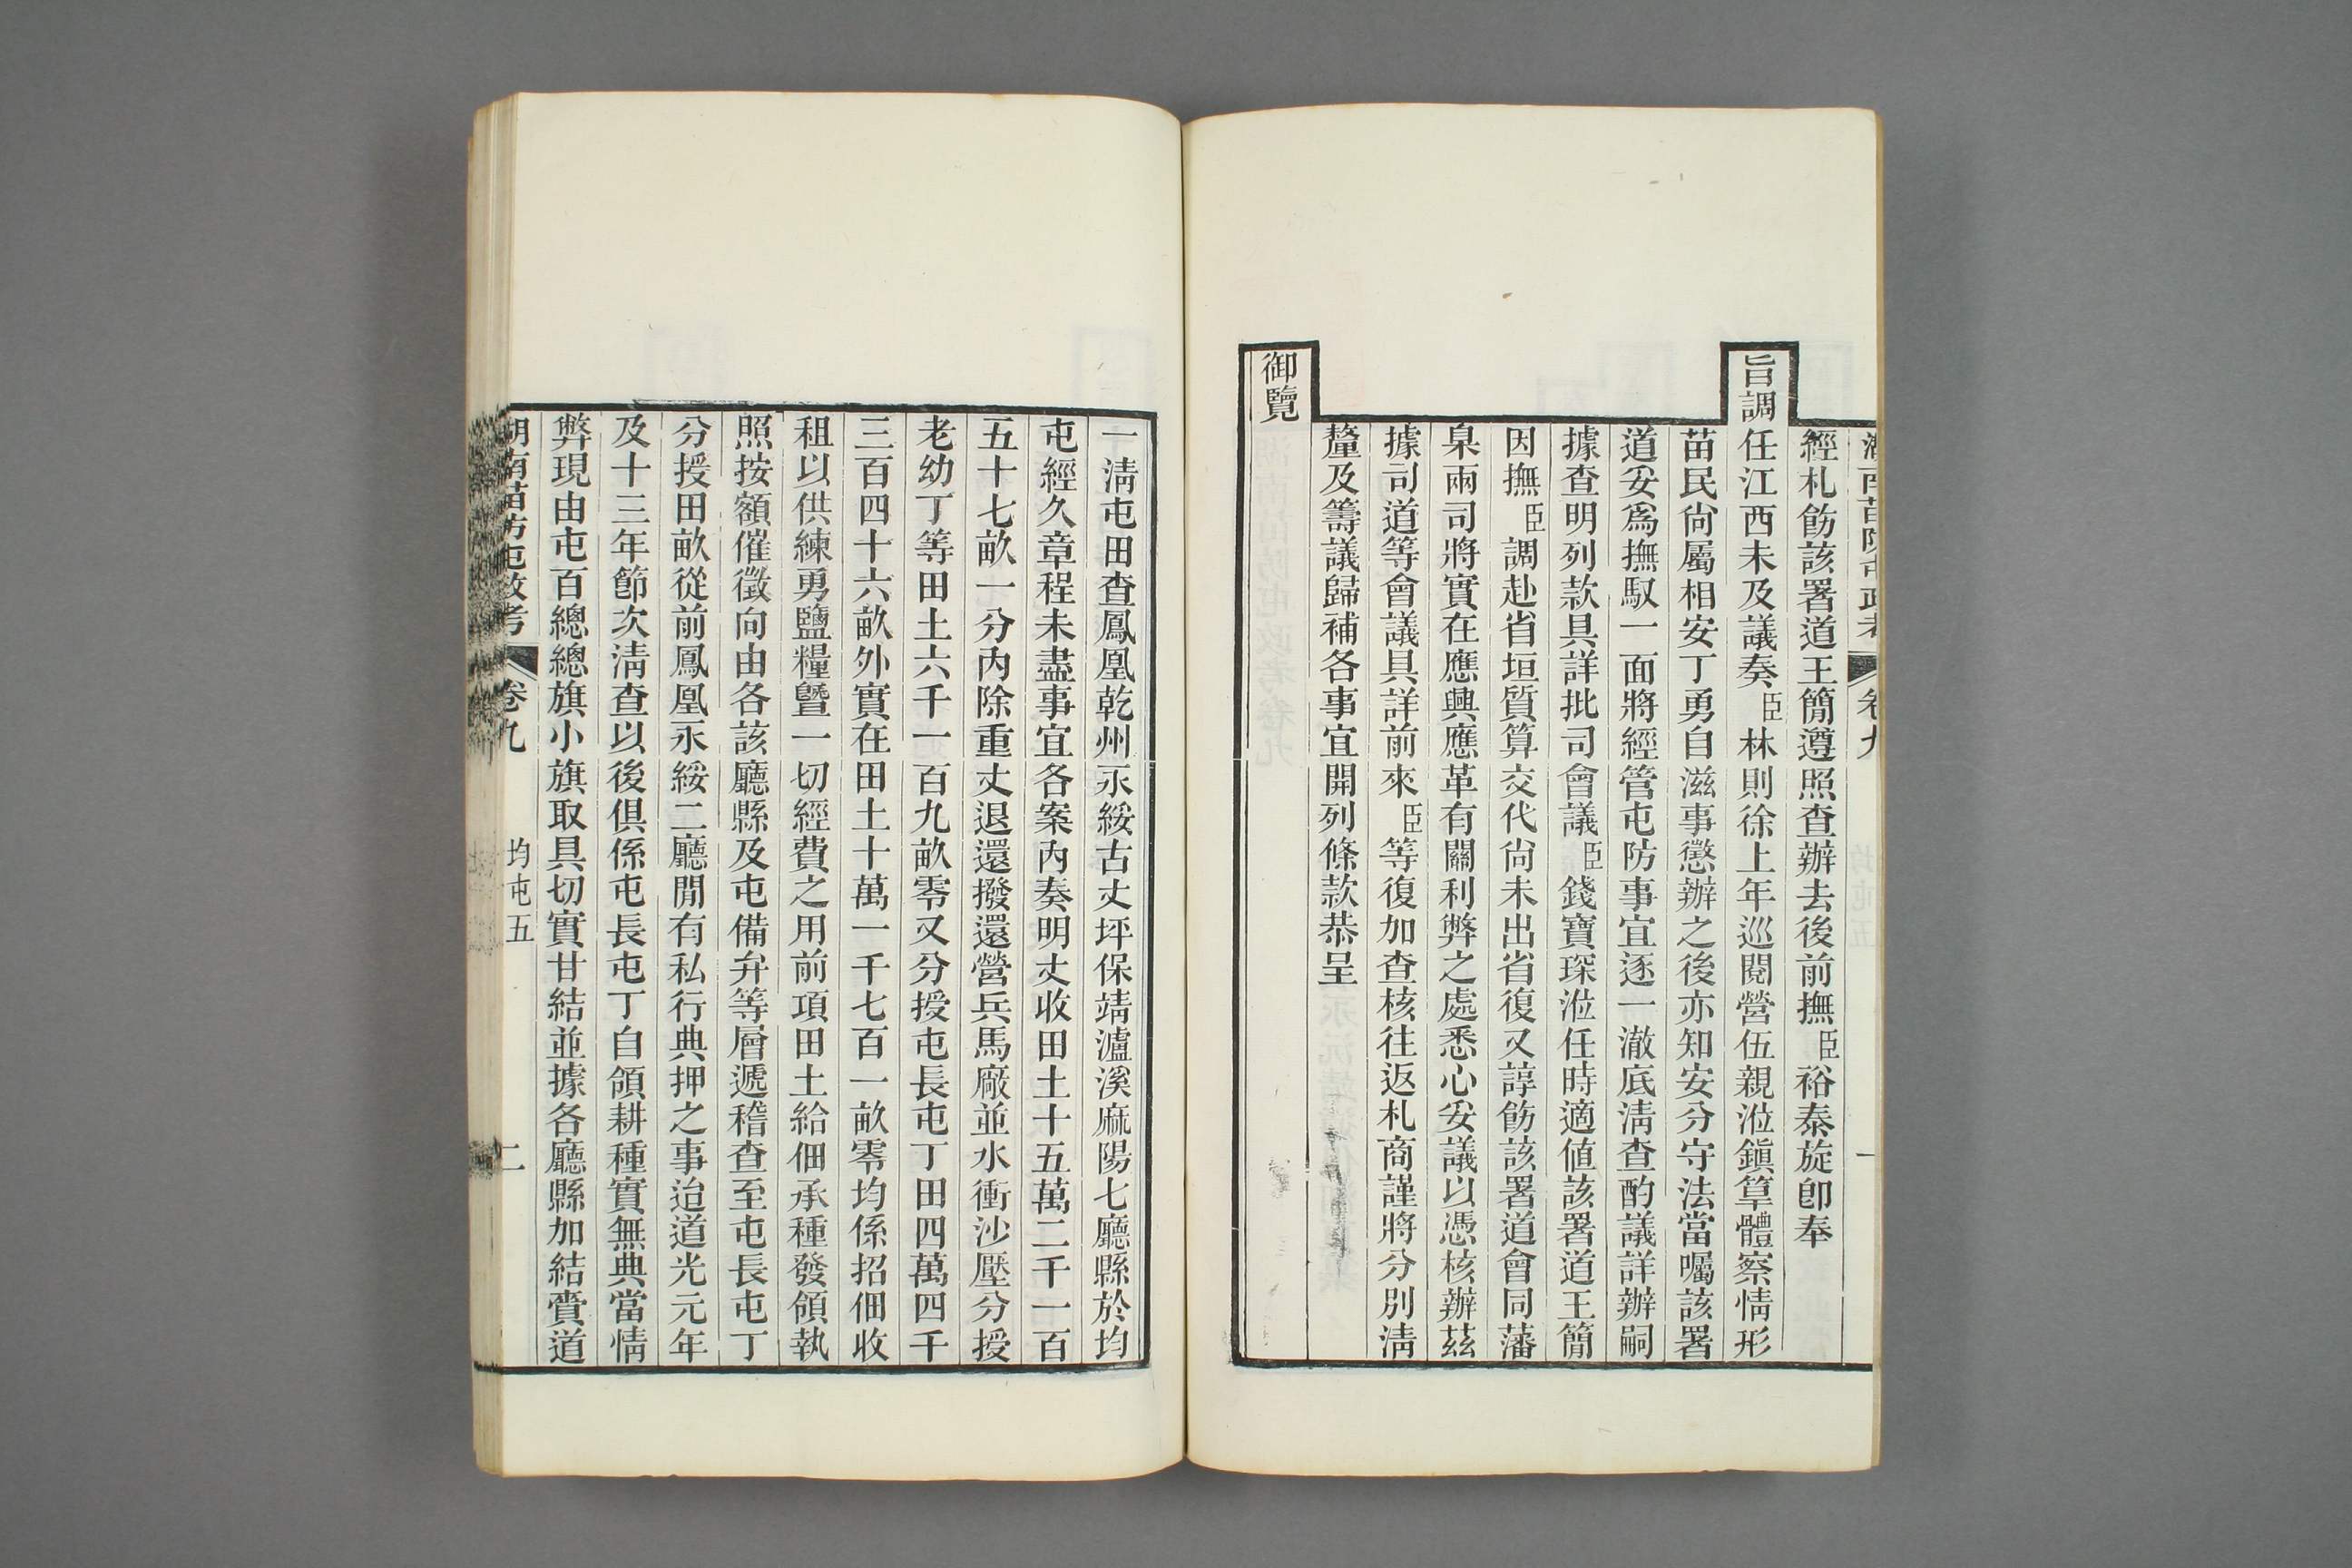 湖南苗防屯政考　卷九　一
經札飭該署道王簡遵照查辦去後前撫臣裕泰旋卽奉
旨調任江西未及議奏臣林則徐上年巡閱營伍親涖鎭筸體察情形
苗民尙屬相安丁勇自滋事懲辦之後亦知安分守法當囑該署
道妥爲撫馭一面將經管屯防事宜逐一澈底淸查酌議詳辦嗣
據查明列款具詳批司會議臣錢寶琛涖任時適値該署道王簡
因撫臣調赴省垣質算交代尙未出省復又諄飭該署道會同藩
臬兩司將實在應興應革有關利弊之處悉心妥議以憑核辦茲
據司道等會議具詳前來臣等復加查核往返札商謹將分別淸
釐及籌議歸補各事宜開列條款恭呈
御覽
一淸屯田查鳳凰乾州永綏古丈坪保靖瀘溪麻陽七廳縣於均
屯經久章程未盡事宜各案內奏明丈收田土十五萬二千一百
五十七畝一分內除重丈退還撥還營兵馬廠並水衝沙壓分授
老幼丁等田土六千一百九畝零又分授屯長屯丁田四萬四千
三百四十六畝外實在田土十萬一千七百一畝零均係招佃收
租以供練勇鹽糧曁一切經費之用前項田土給佃承種發領執
照按額催徵向由各該廳縣及屯備弁等層遞稽查至屯長屯丁
分授田畝從前鳳凰永綏二廳閒有私行典押之事迨道光元年
及十三年節次淸查以後俱係屯長屯丁自領耕種實無典當情
弊現由屯百總總旗小旗取具切實甘結並據各廳縣加結賫道
湖南苗防屯政考　卷九　均屯五　二